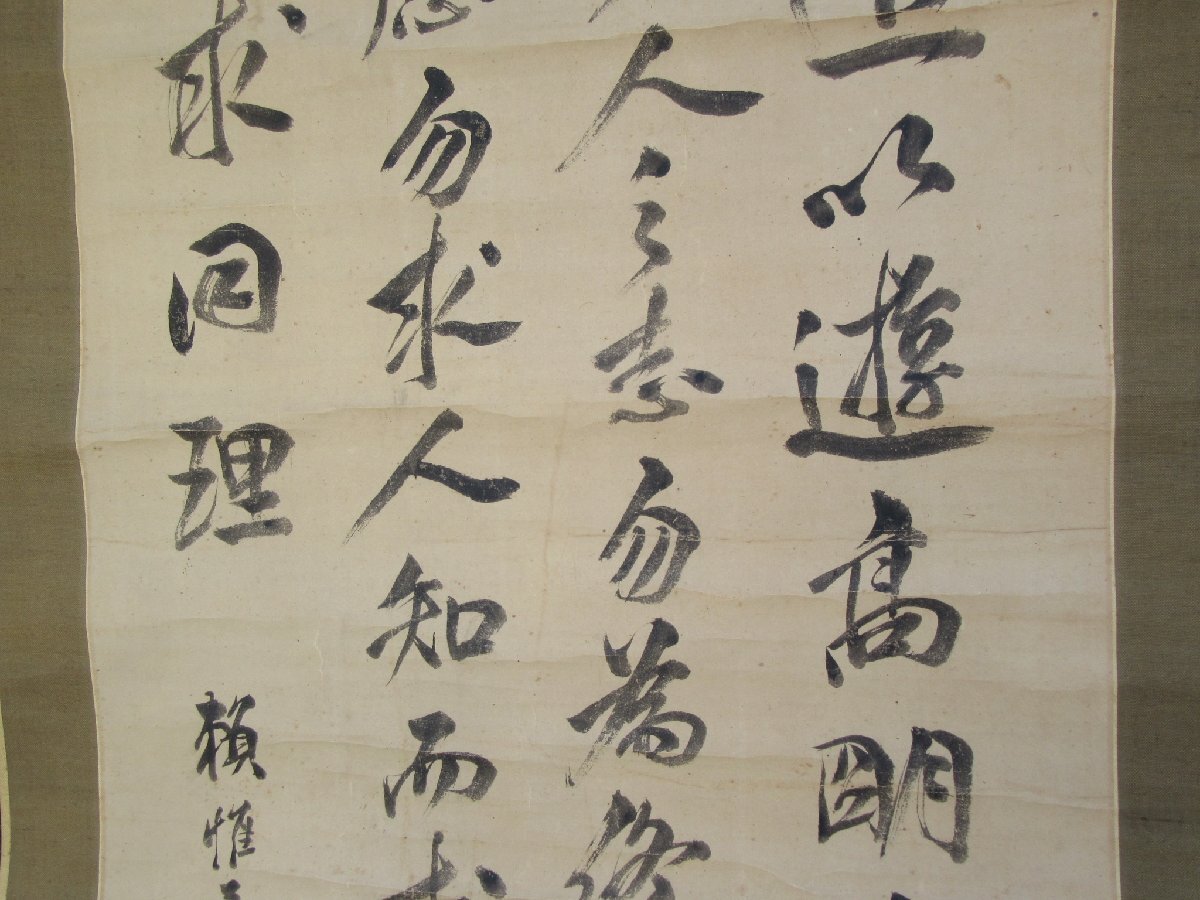 以遊高明
人之志勿為終
勿求人知而求
求同理
頼惟